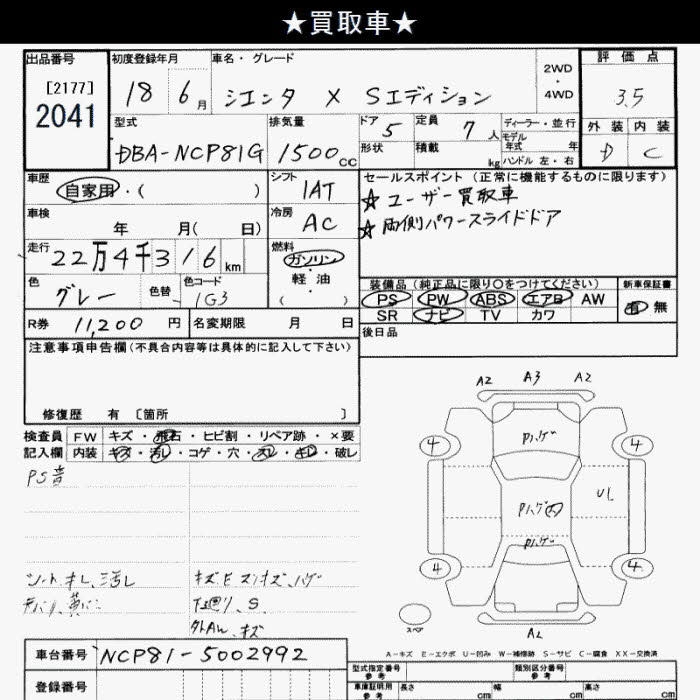 ★買取車★
出品番号
[2177]
2041
初度登録年月
18 6月
車名・グレード
シエンタ X Sエディション
2WD
・
4WD
評価点
3.5
外装 内装
D C
型式
DBA-NCP81G
排気量
1500cc
ドア
5
定員
7人
ディーラー・並行
モデル年式 年
形状
積載
kg
ハンドル 左・右
車歴
自家用・( )
シフト
IAT
セールスポイント(正常に機能するものに限ります)
☆ユーザー買取車
☆両側パワースライドドア
車検
年 月( 日)
冷房
AC
走行
22万4千316km
燃料
ガソリン
軽油
( )
色
グレー
色替
色コード
1G3
装備品(純正品に限り○をつけてください)
PS PW ABS エアB AW
SR ナビ TV カワ
新車保証書
有 無
R券 11,200円
名変期限 月 日
後日品
注意事項申告欄(不具合内容等は具体的に記入して下さい)
修復歴 有 〔箇所 〕
検査員記入欄
FW キズ・飛石・ヒビ割・リペア跡・×要
内装 キズ・汚レ・コゲ・穴・スレ・キレ・破レ
PS音
シートキレ、汚レ
キズ、E、スリキズ、ハゲ
下廻り、S
外AW、キズ
A2 A3 A2
Pハゲ
4 4
Pハゲ凹
UL
Pハゲ
4 4
スペア
A2
A-キズ E-エクボ U-凹み W-補修跡 S-サビ C-腐食 XX-交換済
車台番号 NCP81-5002992
登録番号
型式指定番号
参考
類別区分番号
参考
車庫証明用
参考
長さ cm
幅 cm
高さ cm